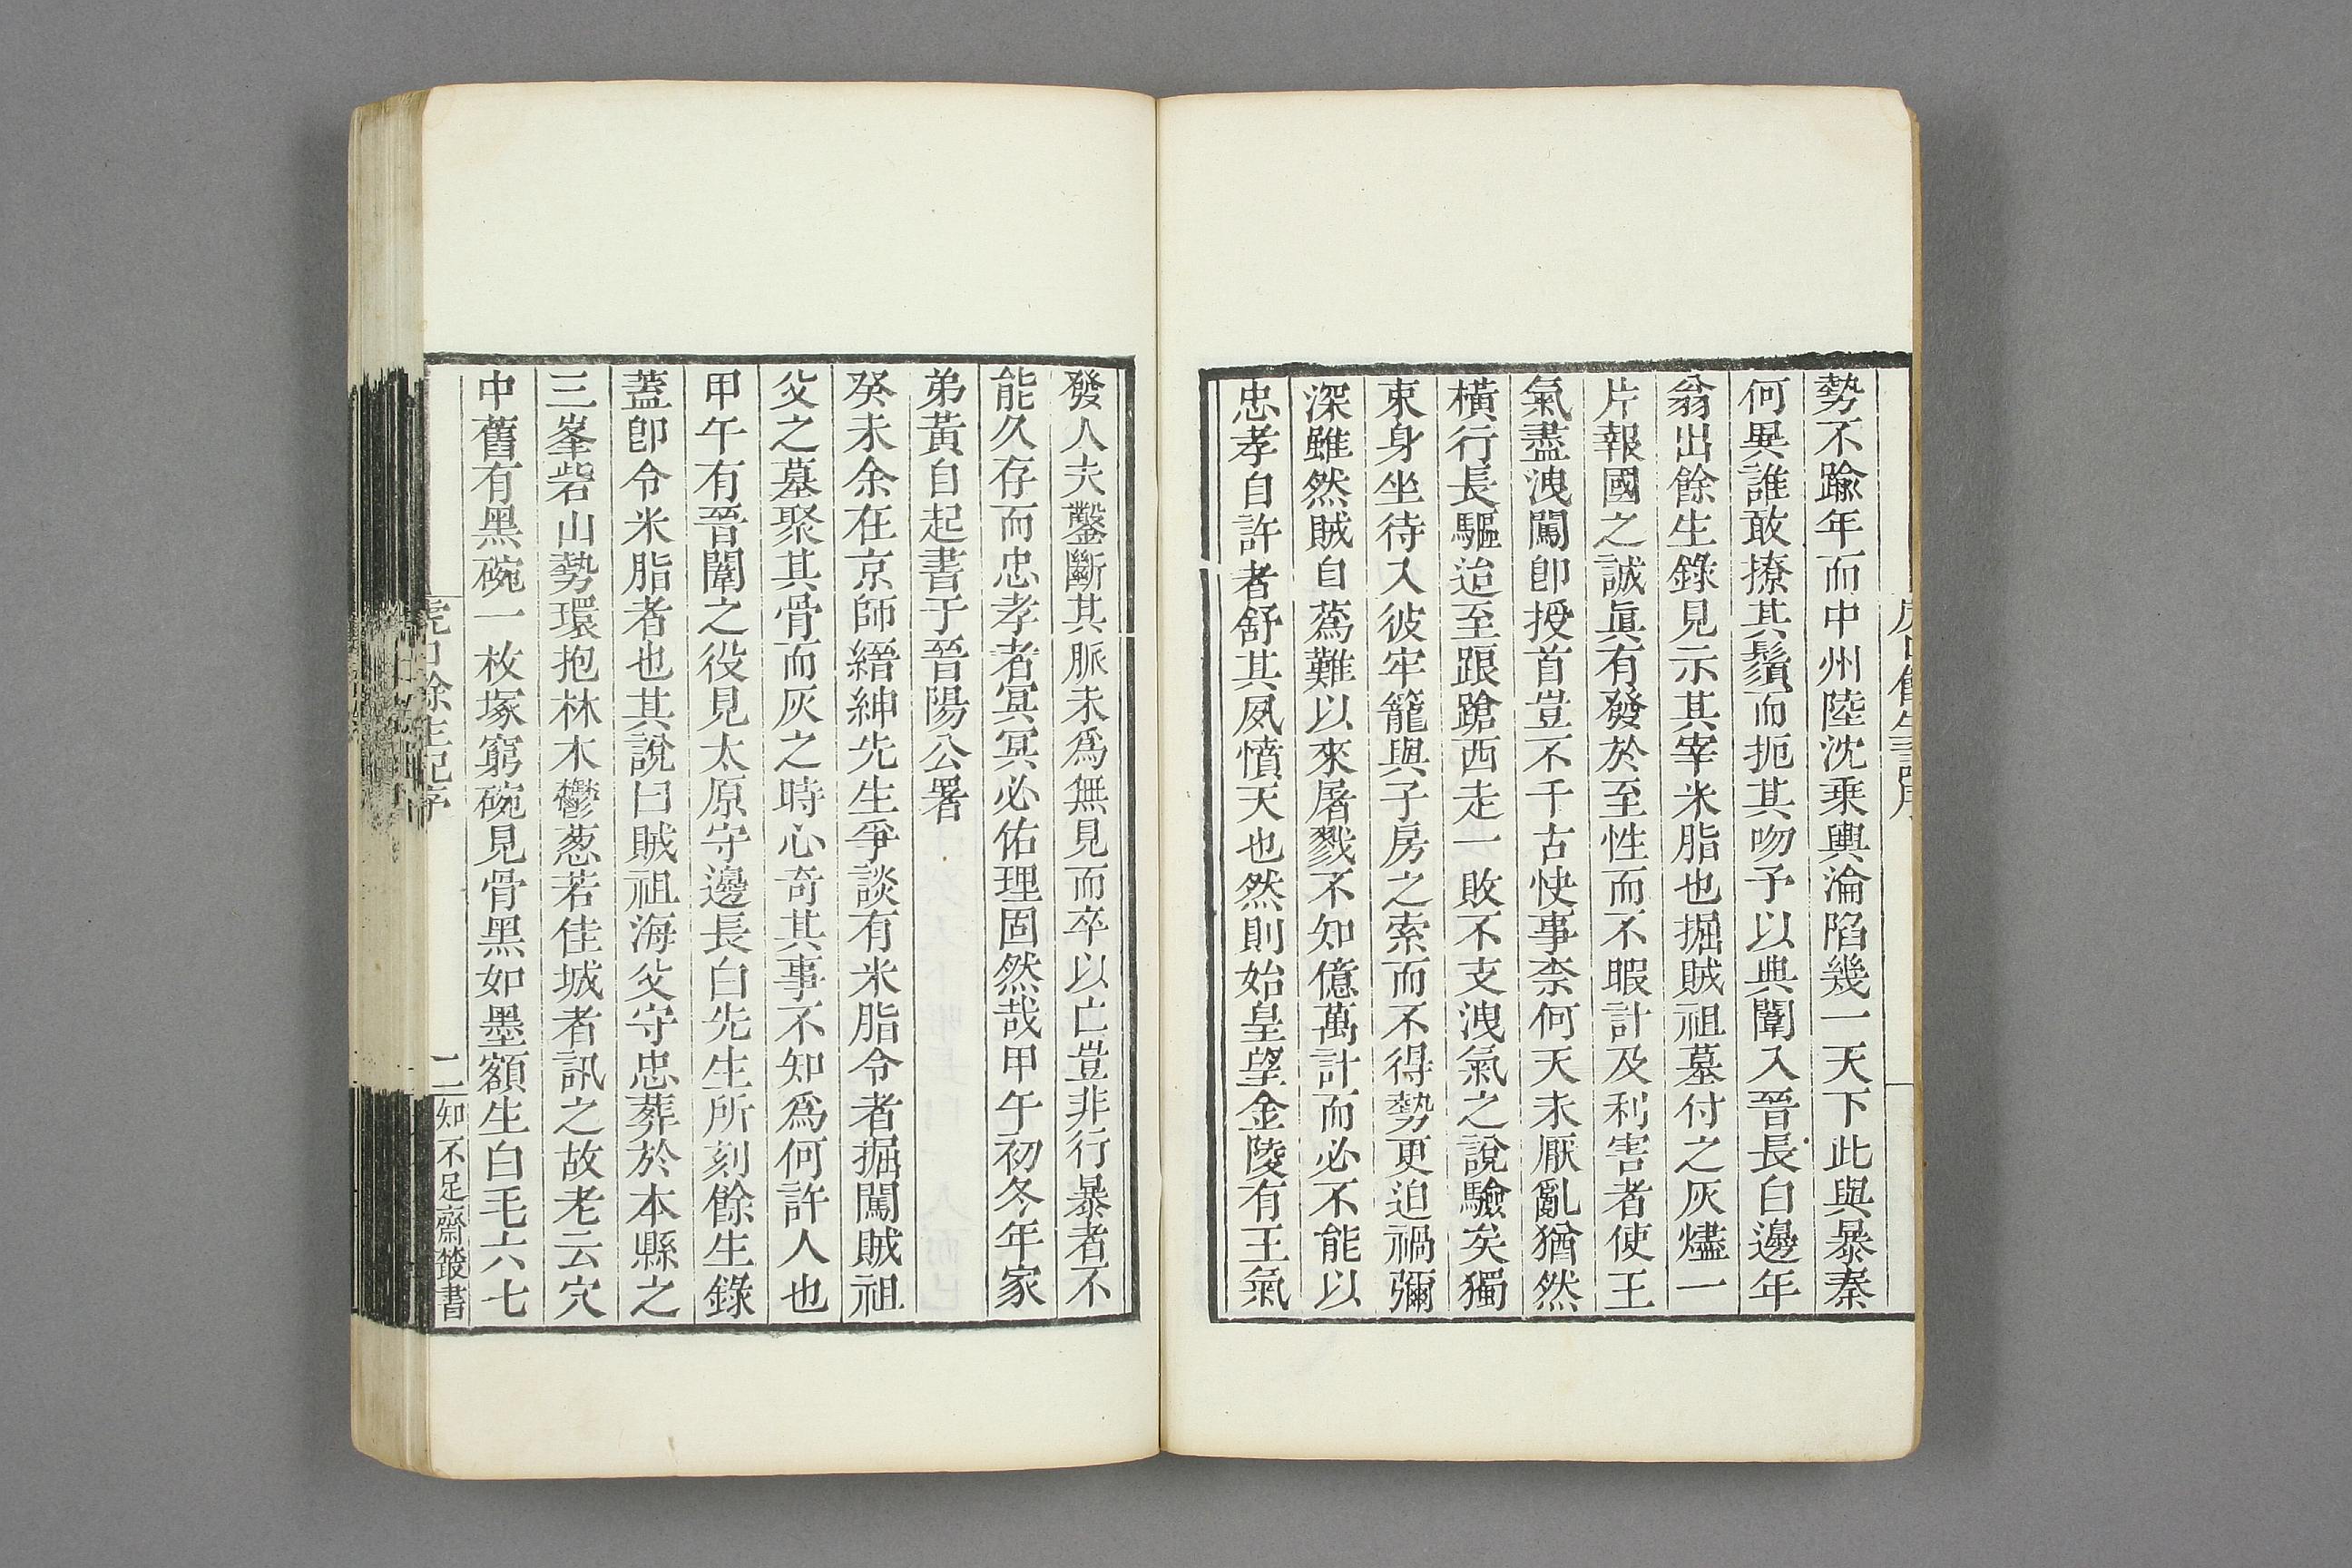 勢不踰年而中州陸沈乗輿淪陷幾一天下此與暴秦
何異誰敢撩其鬚而扼其吻予以典闈入晉長白邊年
翁出餘生錄見示其宰米脂也掘賊祖墓付之灰燼一
片報國之誠眞有發於至性而不暇計及利害者使王
氣盡洩闖卽授首豈不千古快事柰何天未厭亂猶然
橫行長驅迨至踉蹌西走一敗不支洩氣之說驗矣獨
束身坐待入彼牢籠與子房之索而不得勢更迫禍彌
深雖然賊自蔿難以來屠戮不知億萬計而必不能以
忠孝自許者舒其夙憤天也然則始皇望金陵有王氣
發人夫鑿斷其脈未爲無見而卒以亡豈非行暴者不
能久存而忠孝者冥冥必佑理固然哉甲午初冬年家
弟黃自起書于晉陽公署
癸未余在京師縉紳先生爭談有米脂令者掘闖賊祖
父之墓聚其骨而灰之時心奇其事不知爲何許人也
甲午有晉闈之役見太原守邊長白先生所刻餘生錄
蓋卽令米脂者也其說曰賊祖海父守忠葬於本縣之
三峯砦山勢環抱林木鬱葱若佳城者訊之故老云穴
中舊有黑碗一枚塚窮碗見骨黑如墨額生白毛六七
虎口餘生記序
二
知不足齋叢書